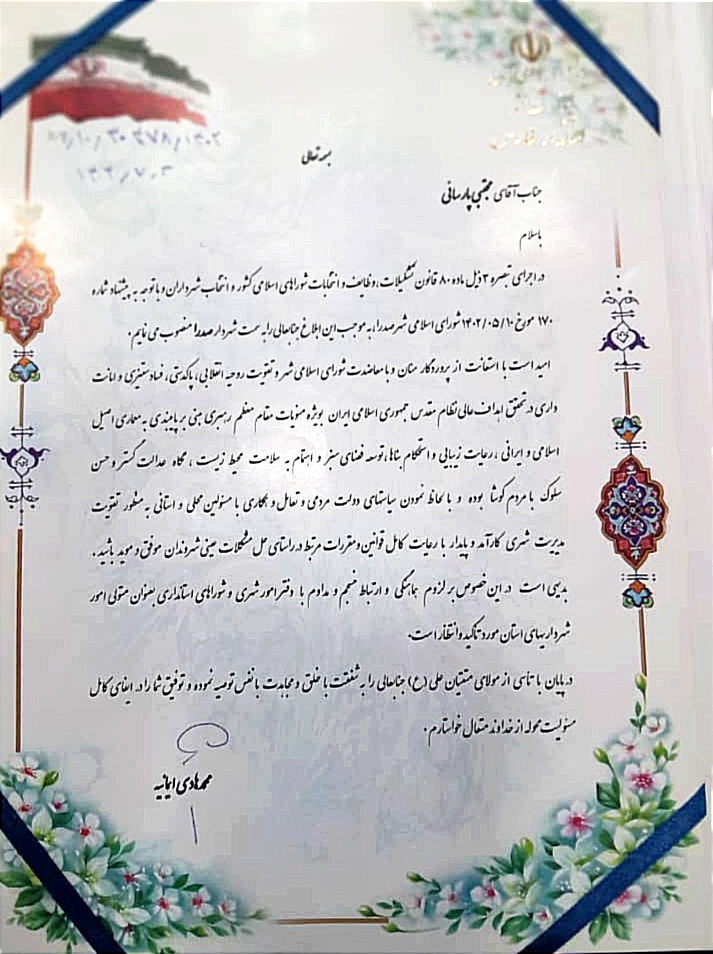 بسمه تعالی
جناب آقای مجتبی پارسائی
باسلام
در اجرای تبصره ۳ ذیل ماده ۸۰ قانون تشکیلات، وظایف و انتخابات شوراهای اسلامی کشور و انتخاب شهرداران و با توجه به پیشنهاد شماره
۱۷۰ مورخ ۱۴۰۲/۰۵/۱۰ شورای اسلامی شهر صدرا، به موجب این ابلاغ جنابعالی را به سمت شهردار صدرا منصوب می نمایم.
امید است با استعانت از پروردگار منان و با معاضدت شورای اسلامی شهر و تقویت روحیه انقلابی، پاکدستی، فساد ستیزی و امانت
داری در تحقق اهداف عالی نظام مقدس جمهوری اسلامی ایران بویژه منویات مقام معظم رهبری مبنی بر پایبندی به معماری اصیل
اسلامی و ایرانی، رعایت زیبایی و استحکام بناها، توسعه فضای سبز و اهتمام به سلامت محیط زیست، نگاه عدالت گستر و حسن
سلوک با مردم کوشا بوده و با لحاظ نمودن سیاستهای دولت مردمی و تعامل و همکاری با مسئولین محلی و استانی به منظور تقویت
مدیریت شهری کارآمد و پایدار با رعایت کامل قوانین و مقررات مرتبط در راستای حل مشکلات عینی شهروندان موفق و موید باشید.
بدیهی است در این خصوص بر لزوم هماهنگی و ارتباط منسجم و مداوم با دفتر امور شهری و شوراهای استانداری بعنوان متولی امور
شهرداریهای استان مورد تاکید و انتظار است.
در پایان با تاسی از مولای متقیان علی (ع) جنابعالی را به شفقت با خلق و مجاهدت با نفس توصیه نموده و توفیق شما را در ایفای کامل
مسئولیت محوله از خداوند متعال خواستارم.
محمدهادی ایمانیه